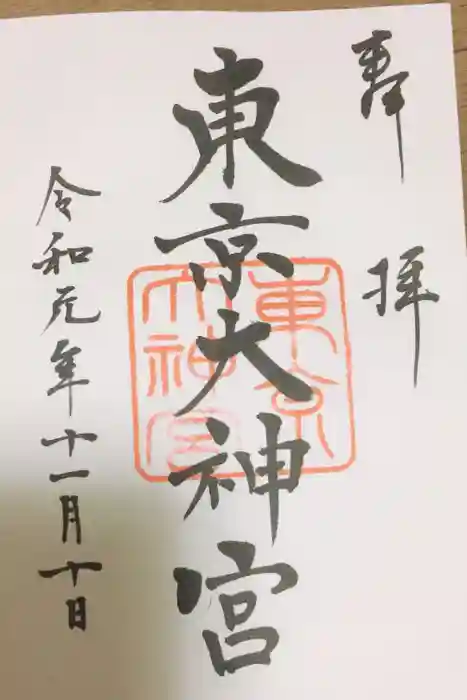 奉拝
東京大神宮
東京
大神宮
令和元年十一月十日